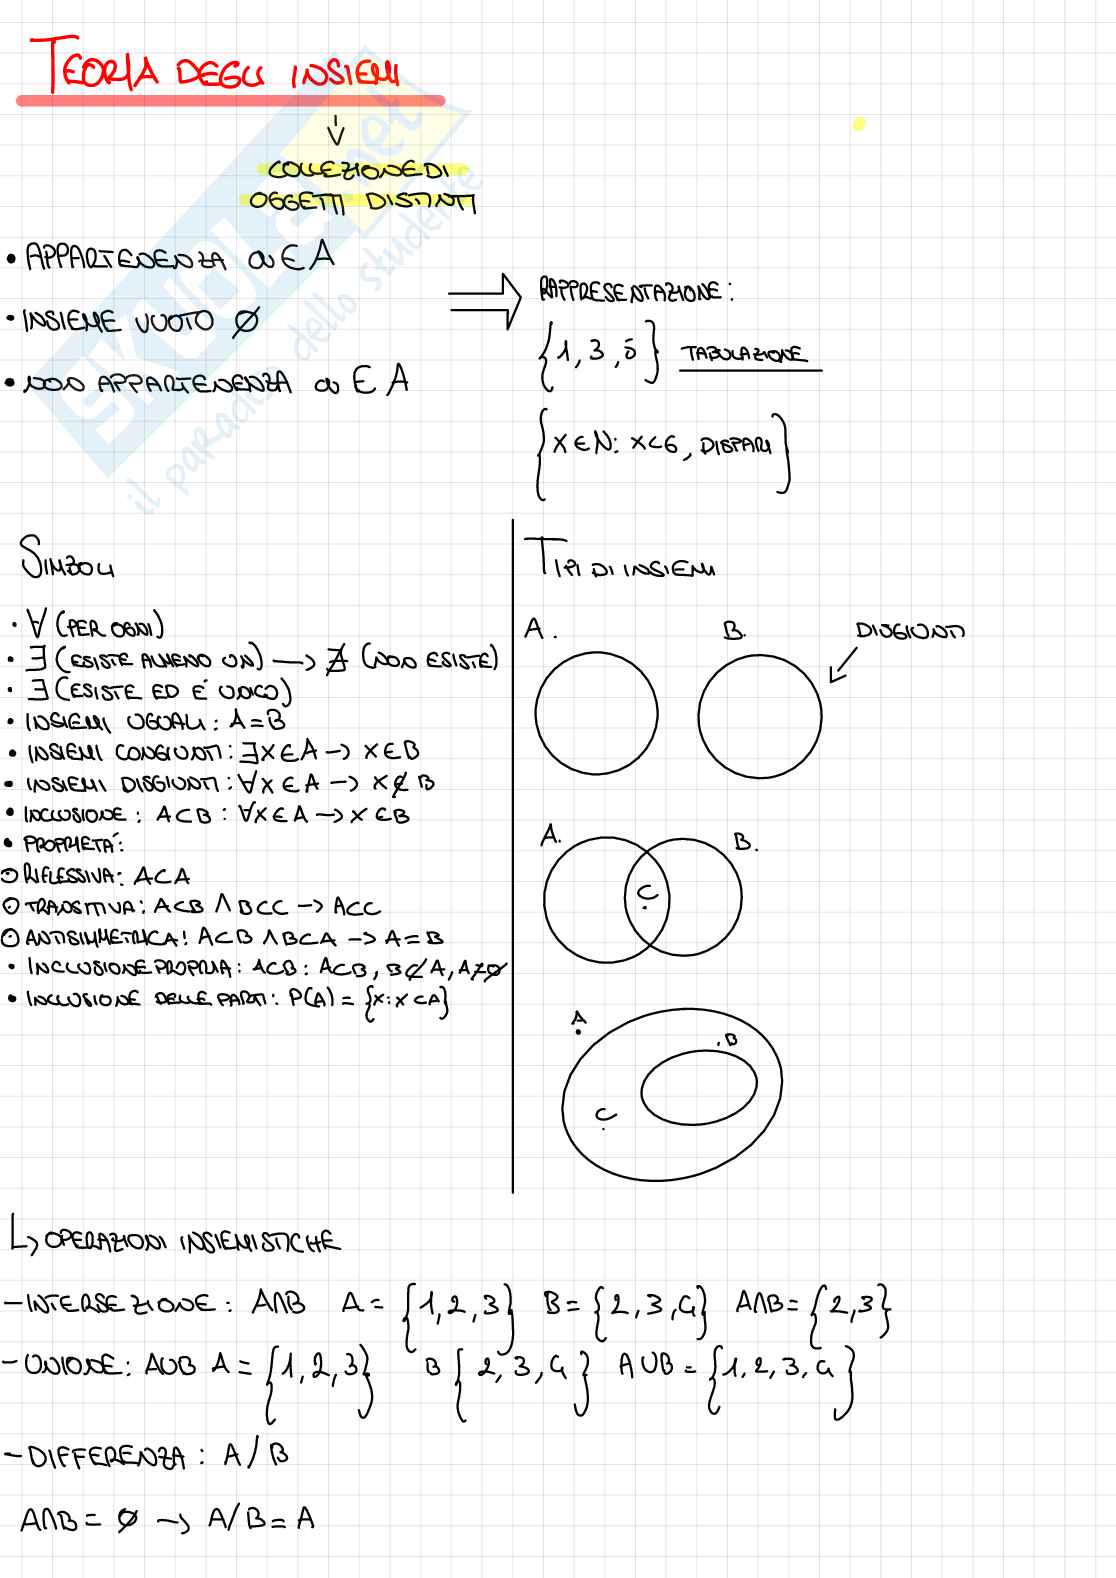 TEORIA DEGLI INSIEMI
COLLEZIONE DI
OGGETTI DISTINTI
• APPARTENENZA a ∈ A
• INSIEME VUOTO Ø
• NON APPARTENENZA a ∈ A
RAPPRESENTAZIONE:
{1, 3, 5} TABULAZIONE
{X ∈ N: X < 6, DISPARI}
SKUOLA.net
il paradiso dello studente
SIMBOLI
• ∀ (PER OGNI)
• ∃ (ESISTE ALMENO UN) → ∄ (NON ESISTE)
• ∃ (ESISTE ED É UNICO)
• INSIEMI UGUALI: A = B
• INSIEMI CONGIUNTI: ∃X ∈ A → X ∈ B
• INSIEMI DISGIUNTI: ∀X ∈ A → X ∉ B
• INCLUSIONE: A ⊂ B : ∀X ∈ A → X ∈ B
• PROPRIETÁ:
○ RIFLESSIVA: A ⊂ A
○ TRANSITIVA: A ⊂ B ∧ B ⊂ C → A ⊂ C
○ ANTISIMMETRICA: A ⊂ B ∧ B ⊂ A → A = B
• INCLUSIONE PROPRIA: A ⊂ B: A ⊂ B, B ⊄ A, A ≠ Ø
• INCLUSIONE DELLE PARTI: P(A) = {X: X ⊂ A}
TIPI DI INSIEMI
A. B. DISGIUNTI
A. B.
C
A
B
C
↳ OPERAZIONI INSIEMISTICHE
- INTERSEZIONE: A∩B A = {1, 2, 3} B = {2, 3, 4} A∩B = {2, 3}
- UNIONE: A∪B A = {1, 2, 3} B {2, 3, 4} A∪B = {1, 2, 3, 4}
- DIFFERENZA: A / B
A∩B = Ø → A/B = A